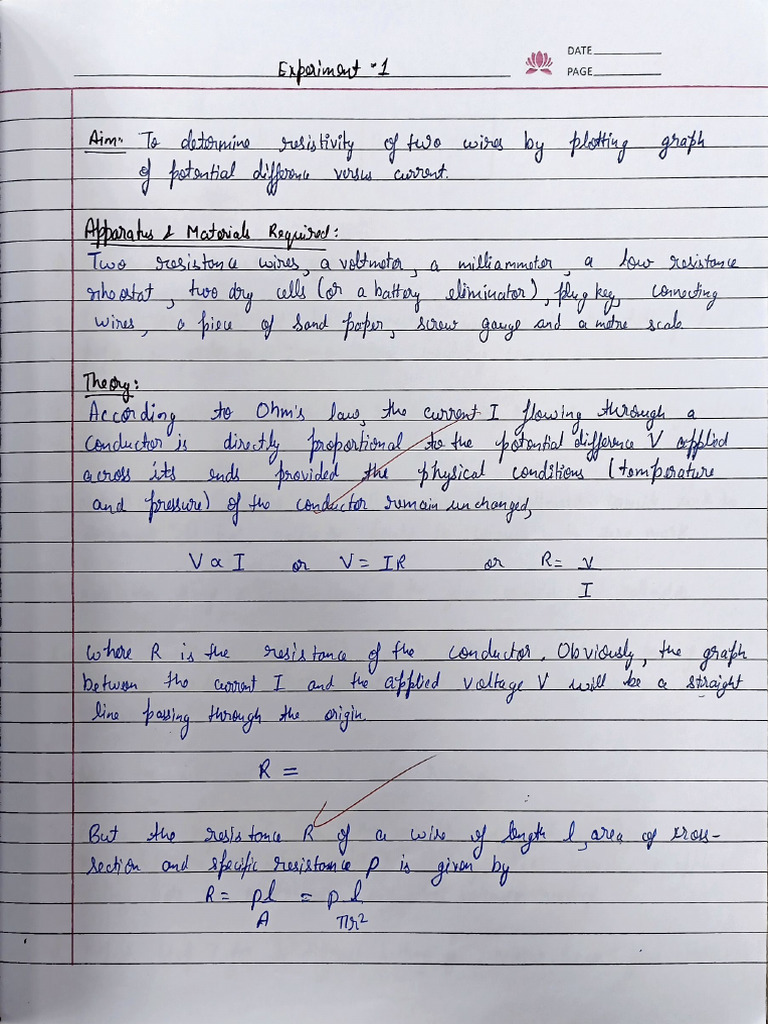 Experiment-1
DATE
PAGE
Aim: To determine resistivity of two wires by plotting graph
of potential difference versus current.
Apparatus & Materials Required:
Two resistance wires, a voltmeter, a milliammeter, a low resistance
rheostat, two dry cells (or a battery eliminator), plug key, connecting
wires, a piece of sand paper, screw gauge and a metre scale.
Theory:
According to Ohm's law, the current I flowing through a
conductor is directly proportional to the potential difference V applied
across its ends provided the physical conditions (temperature
and pressure) of the conductor remain unchanged,
V ∝ I or V = IR or R = V
I
Where R is the resistance of the conductor. Obviously, the graph
between the current I and the applied voltage V will be a straight
line passing through the origin.
R =
But the resistance R of a wire of length l, area of cross-
section and specific resistance ρ is given by
R = ρl = ρ l
A πr²